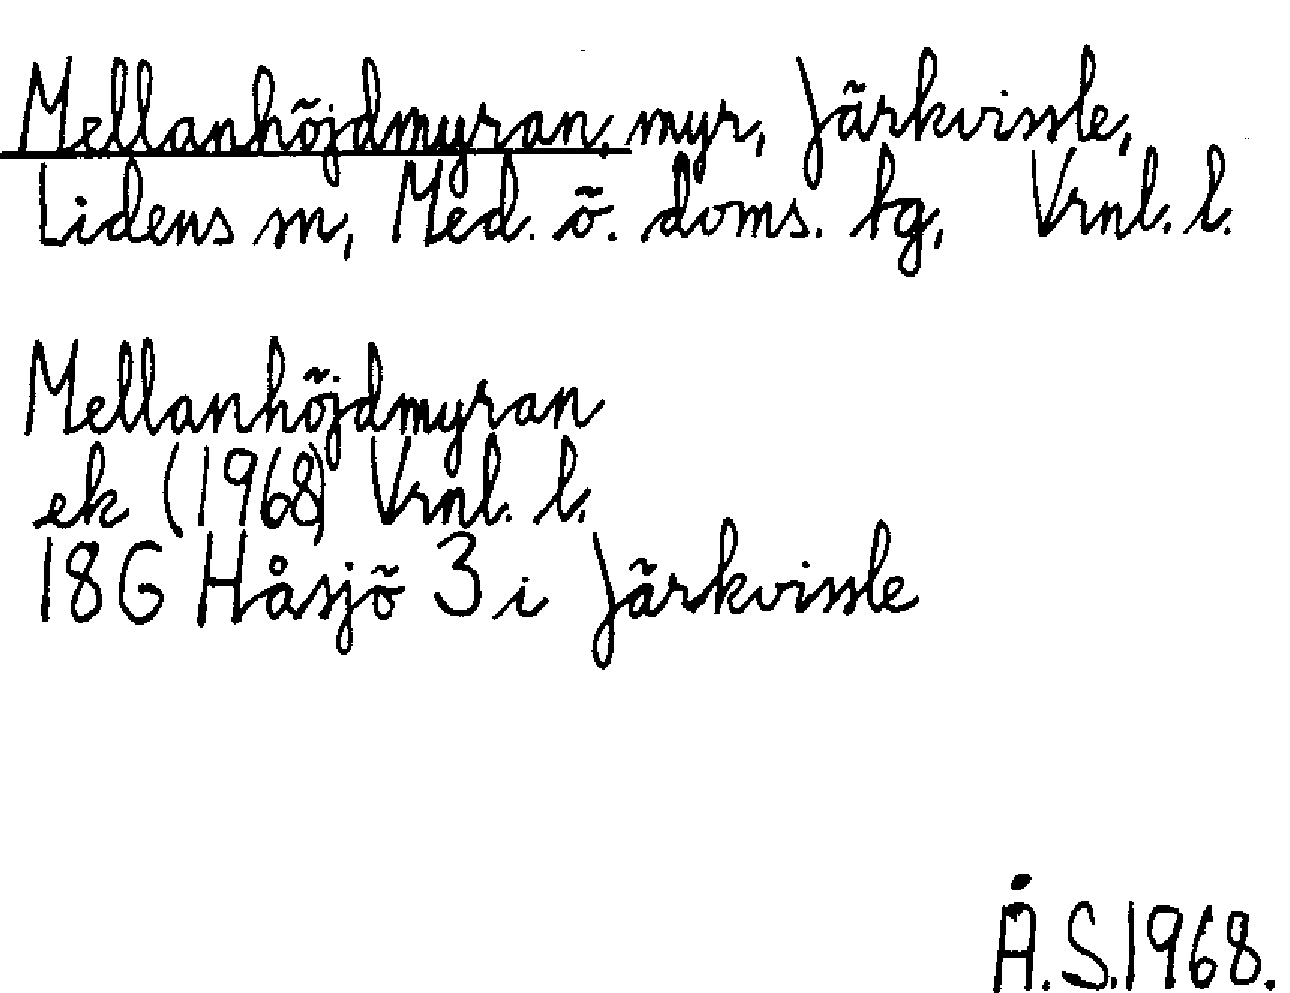 Mellanhöjdmyran, myr, Järkvissle,
Lidens sn, Med. ö. doms. tg, Vrnl. l.
Mellanhöjdmyran
ek (1968) Vrnl. l.
18G Håsjö 3 i Järkvissle
Å.S.1968.